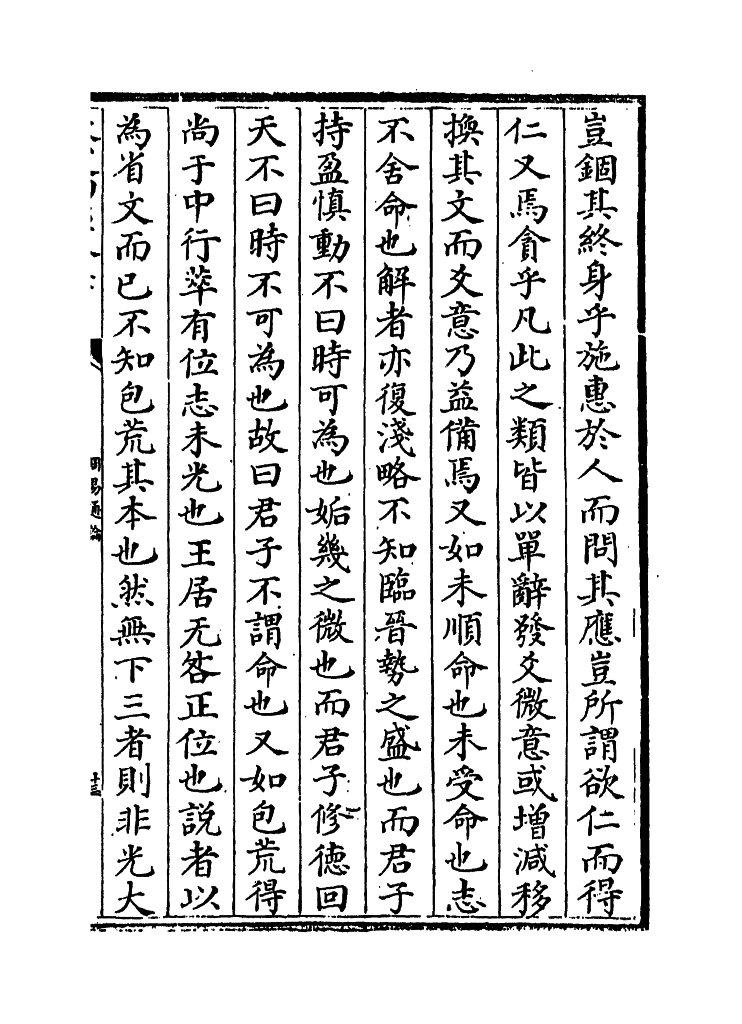 豈錮其終身乎施惠於人而問其應豈所謂欲仁而得
仁又焉貪乎凡此之類皆以單辭發爻微意或增減移
換其文而爻意乃益備焉又如未順命也未受命也志
不舍命也解者亦復淺略不知臨晉勢之盛也而君子
持盈慎動不曰時可為也姤幾之微也而君子修徳回
天不曰時不可為也故曰君子不謂命也又如包荒得
尚于中行萃有位志未光也王居无咎正位也說者以
為省文而已不知包荒其本也然無下三者則非光大
周易通論
十三